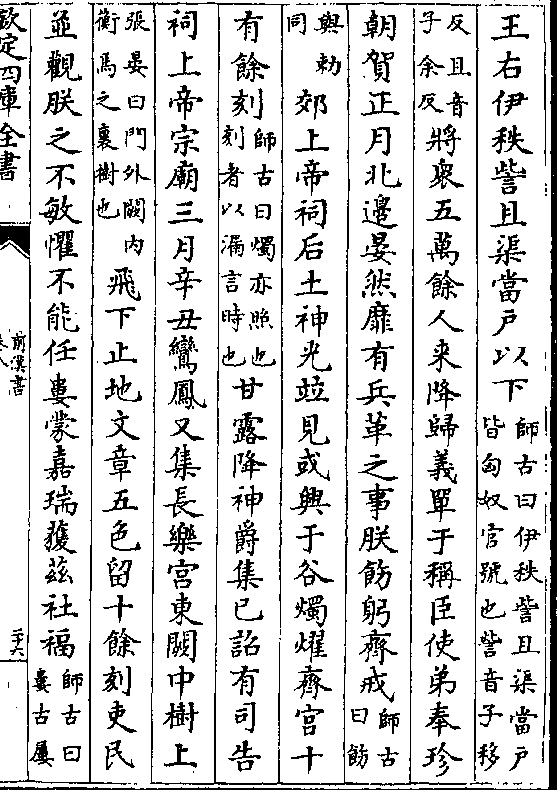 王右伊秩訾且渠當戶以下師古曰伊秩訾且渠當戶皆匈奴官號也訾音子移
反且音子余反將衆五萬餘人來降歸義單于稱臣使弟奉珍
朝賀正月北邊晏然靡有兵革之事朕飭躬齊戒師古曰飭
與勅同郊上帝祠后土神光並見或興于谷燭耀齊宮十
有餘刻師古曰燭亦照也刻者以漏言時也甘露降神爵集已詔有司告
祠上帝宗廟三月辛丑鸞鳳又集長樂宮東闕中樹上
張晏曰門外闕內衡馬之裏樹也飛下止地文章五色留十餘刻吏民
並觀朕之不敏懼不能任婁蒙嘉瑞獲茲社福師古曰婁古屢
欽定四庫全書
前漢書
卷八
二十六